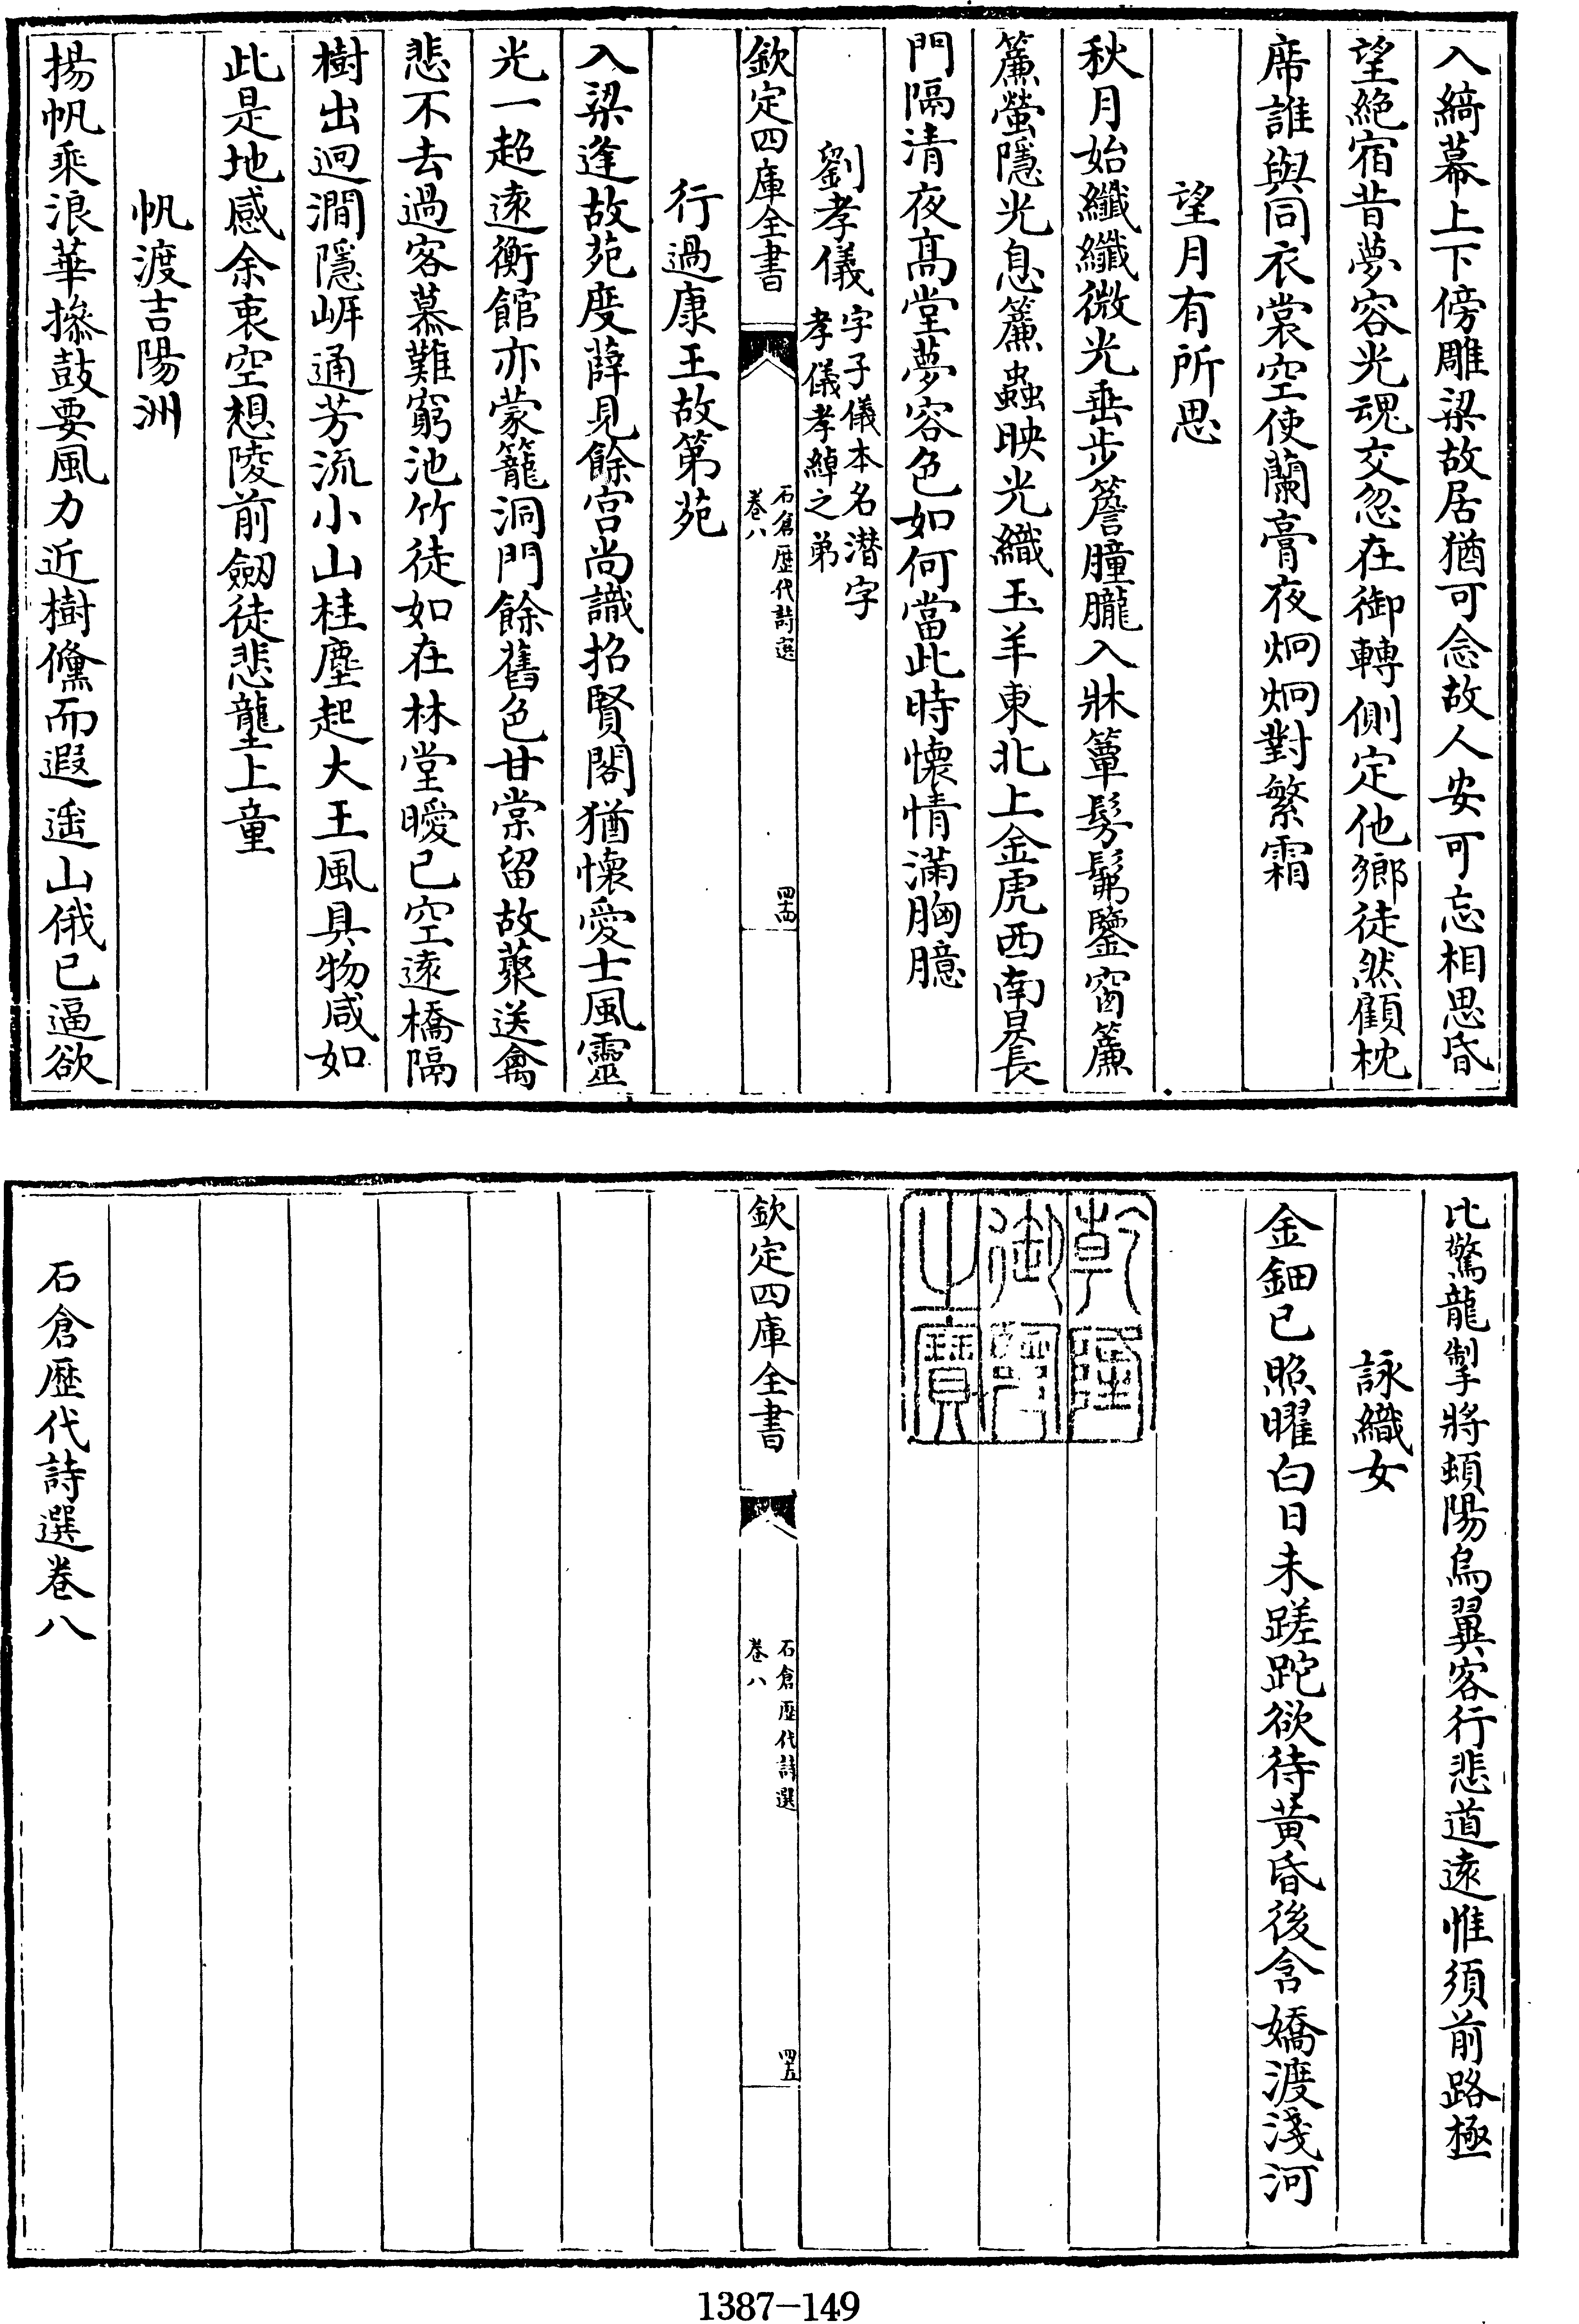 入綺幕上下傍雕梁故居猶可念故人安可忘相思昏
望絶宿昔夢容光魂交忽在御轉側定他鄉徒然顧枕
席誰與同衣裳空使蘭膏夜炯炯對繁霜
望月有所思
秋月始纖纖微光垂步簷朣朧入牀簟髣髴鑒窗簾
簾螢隱光息簾蟲映光織玉羊東北上金虎西南昃長
門隔清夜髙堂夢容色如何當此時懷情滿胸臆
劉孝儀字子儀本名潛字
孝儀孝綽之弟
欽定四庫全書
石倉歴代詩選
卷八
四十四
行過康王故第苑
入梁逢故苑度薛見餘宫尚識招賢閣猶懷愛士風靈
光一超逺衡館亦蒙籠洞門餘舊色甘棠留故蘩送禽
悲不去過客慕難窮池竹徒如在林堂曖已空逺橋隔
樹出迥澗隱崖通芳流小山桂塵起大王風具物咸如
此是地感余衷空想陵前劒徒悲壟上童
帆渡吉陽洲
揚帆乘浪華摻鼓要風力近樹儵而遐遥山俄已逼欲
比驚龍掣將頓陽烏翼客行悲道逺惟須前路極
詠織女
金鈿已照曜白日未蹉跎欲待黄昏後含嬌渡淺河
乾隆
御覽
之寶
欽定四庫全書
石倉歴代詩選
卷八
四十五
石倉歴代詩選卷八
1387-149